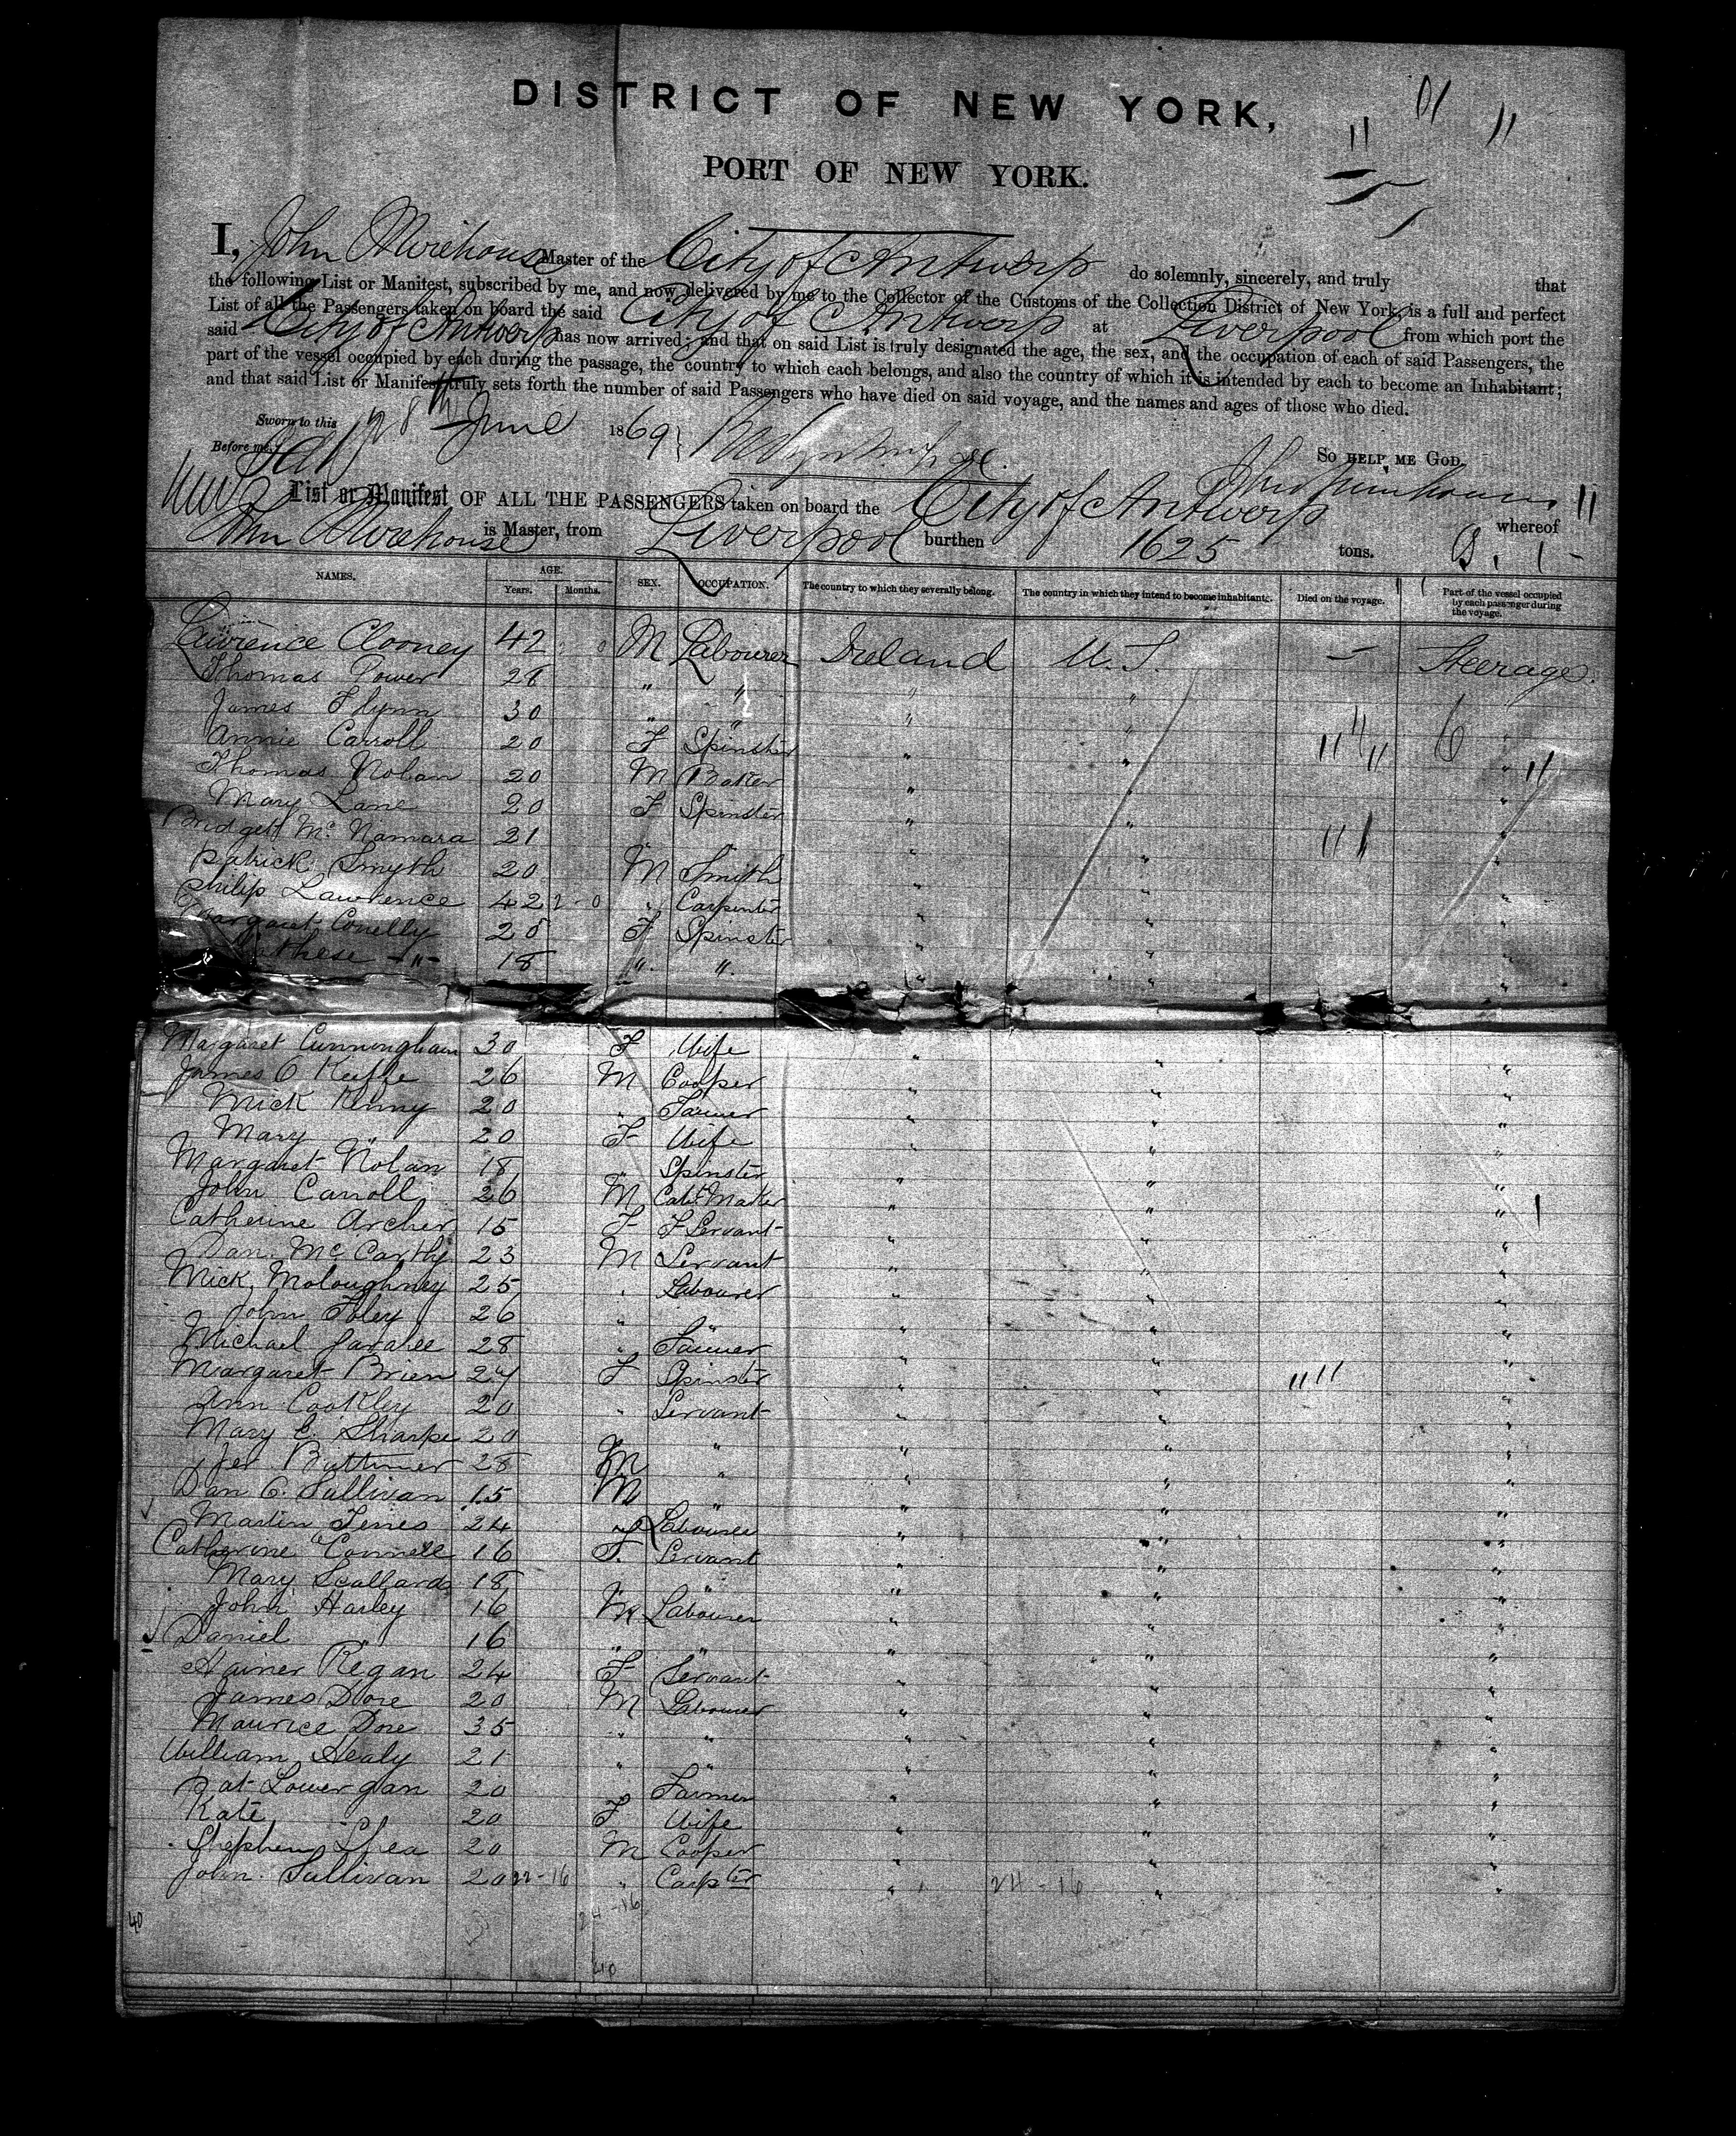 DISTRICT OF NEW YORK,
PORT OF NEW YORK.
I, John Mirehouse Master of the City of Antwerp do solemnly, sincerely, and truly that
the following List or Manifest, subscribed by me, and now delivered by me to the Collector of the Customs of the Collection District of New York, is a full and perfect
List of all the Passengers taken on board the said City of Antwerp at Liverpool from which port the
said City of Antwerp has now arrived; and that on said List is truly designated the age, the sex, and the occupation of each of said Passengers, the
part of the vessel occupied by each during the passage, the country to which each belongs, and also the country of which it is intended by each to become an Inhabitant;
and that said List or Manifest truly sets forth the number of said Passengers who have died on said voyage, and the names and ages of those who died.
Sworn to this 28th June 1869
Before me,
SO HELP ME GOD,
List or Manifest OF ALL THE PASSENGERS taken on board the City of Antwerp whereof
John Mirehouse is Master, from Liverpool burthen 1625 tons.
NAMES. AGE. Years. Months. SEX. OCCUPATION. The country to which they severally belong. The country in which they intend to become inhabitants. Died on the voyage. Part of the vessel occupied by each passenger during the voyage.
Lawrence Clooney 42 M Labourer Ireland U.S. — Steerage.
Thomas Power 28 " " " " "
James Flynn 30 " " " " "
Annie Carroll 20 F Spinster " " "
Thomas Nolan 20 M Baker " " "
Mary Lane 20 F Spinster " " "
Bridgett McNamara 21 " " " " "
Patrick Smyth 20 M Smith " " "
Philip Lawrence 42 " Carpenter " " "
Margaret Conelly 25 F Spinster " " "
-"- 18 " " " " "
Margaret Cunningham 30 F Wife " " "
James O Keffe 26 M Cooper " " "
Mick Kenny 20 " Farmer " " "
Mary " 20 F Wife " " "
Margaret Nolan 18 " Spinster " " "
John Carroll 26 M Cabt. Maker " " "
Catherine Archer 15 F F Servant " " "
Dan Mc Carthy 23 M Servant " " "
Mick Moloughney 25 " Labourer " " "
John Foley 26 " " " " "
Michael 28 " Farmer " " "
Margaret Brien 24 F Spinster " " "
Ann Cookley 20 " Servant " " "
Mary E. Sharpe 20 " " " "
Jer Buttimer 28 M " " " "
Dan O. Sullivan 15 M " " " "
Martin 24 Labourer " " "
Catherine Connell 16 F. Servant " " "
Mary Scallard 18 " " " " "
John Harley 16 M Labourer " " "
Daniel " 16 " " " " "
Regan 24 F Servant " " "
James Dore 20 M Labourer " " "
Maurice Dore 35 " " " " "
William Healy 21 " " " " "
Pat Lowergan 20 " Farmer " " "
Kate " 20 F Wife " " "
Stephen Shea 20 M Cooper " " "
John Sullivan 20 " Carpter " " "
22-16
24-16
24-16
40
40